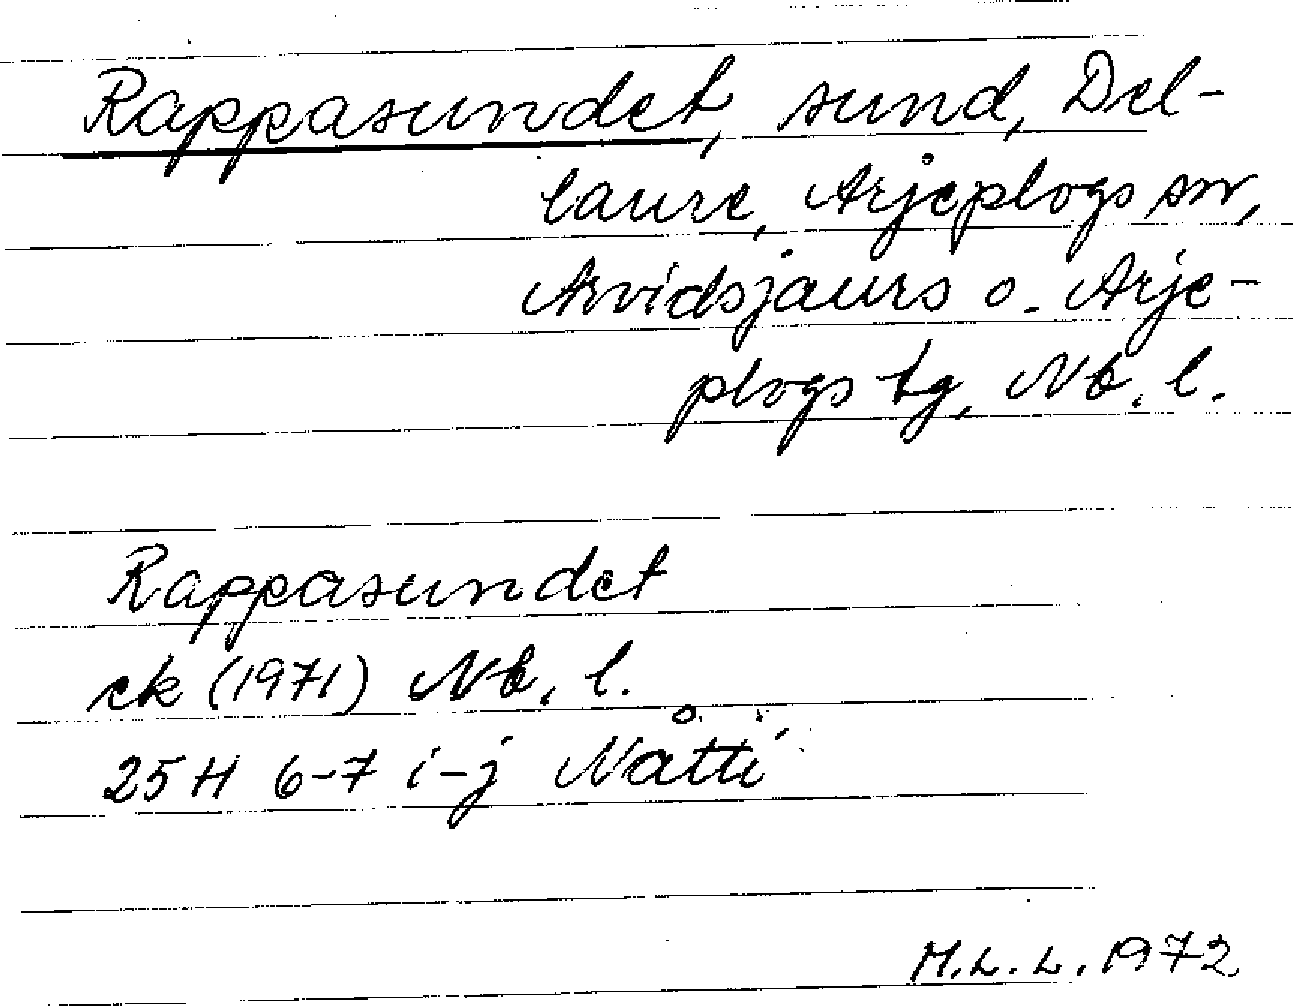 Rappasundet, sund, Del-
laure, Arjeplogs sn,
Arvidsjaurs o. Arje-
plogs tg, Nb. l.
Rappasundet
ek (1971) Nb. l.
25 H 6-7 i-j Nåtti
M.L.L. 1972